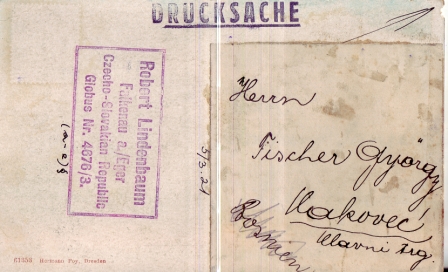 DRUCKSACHE
Robert Lindenbaum
Falkenau a./Eger
Czecho-Slovakian Republic
Globus Nr. 4876/3.
5/3.24
Herrn
Fischer György
Čakovec
Bosnien
Hlavni trg.
Hermann Poy, Dresden